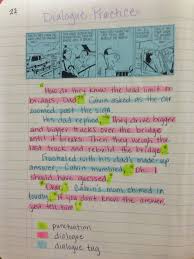 22
Dialogue Practice
"How do they know the load limit on
bridges, Dad?" Calvin asked as the car
zoomed past the sign.
His dad replied, "They drive bigger
and bigger trucks over the bridge
until it breaks. Then they weigh the
last truck and rebuild the bridge."
with his dad's made-up
answer, Calvin mumbled, "Oh. I
should have guessed."
"Dear," Calvin's mom chimed in
"If you don't know the answer,
just tell him."
punctuation
dialogue
dialogue tag